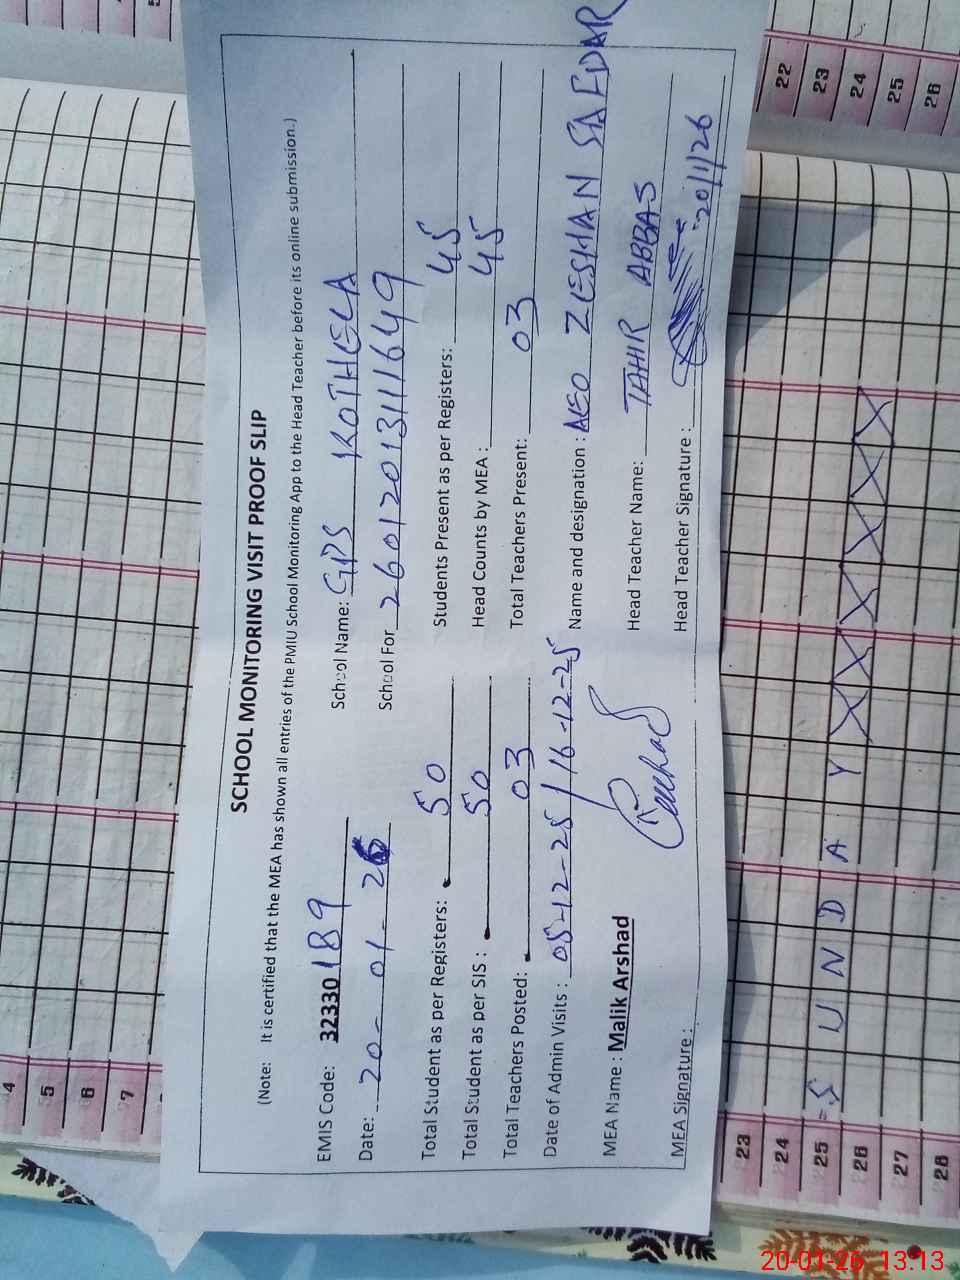 SCHOOL MONITORING VISIT PROOF SLIP
(Note: It is certified that the MEA has shown all entries of the PMIU School Monitoring App to the Head Teacher before its online submission.)
EMIS Code: 32330189 School Name: GPS KOTHELA
Date: 20-01-26 School For 260120131111649
Total Student as per Registers: 50 Students Present as per Registers: 45
Total Student as per SIS : 50 Head Counts by MEA : 45
Total Teachers Posted: 03 Total Teachers Present: 03
Date of Admin Visits : 05-12-25 / 16-12-25 Name and designation : AEO ZESHAN SAFDAR
MEA Name : Malik Arshad Head Teacher Name: TAHIR ABBAS
MEA Signature : Head Teacher Signature : 20/1/26
4
5
6
7
22
23
24
25
26
23
24
25 S U N D A Y
26
27
28
20-01-26, 13.13